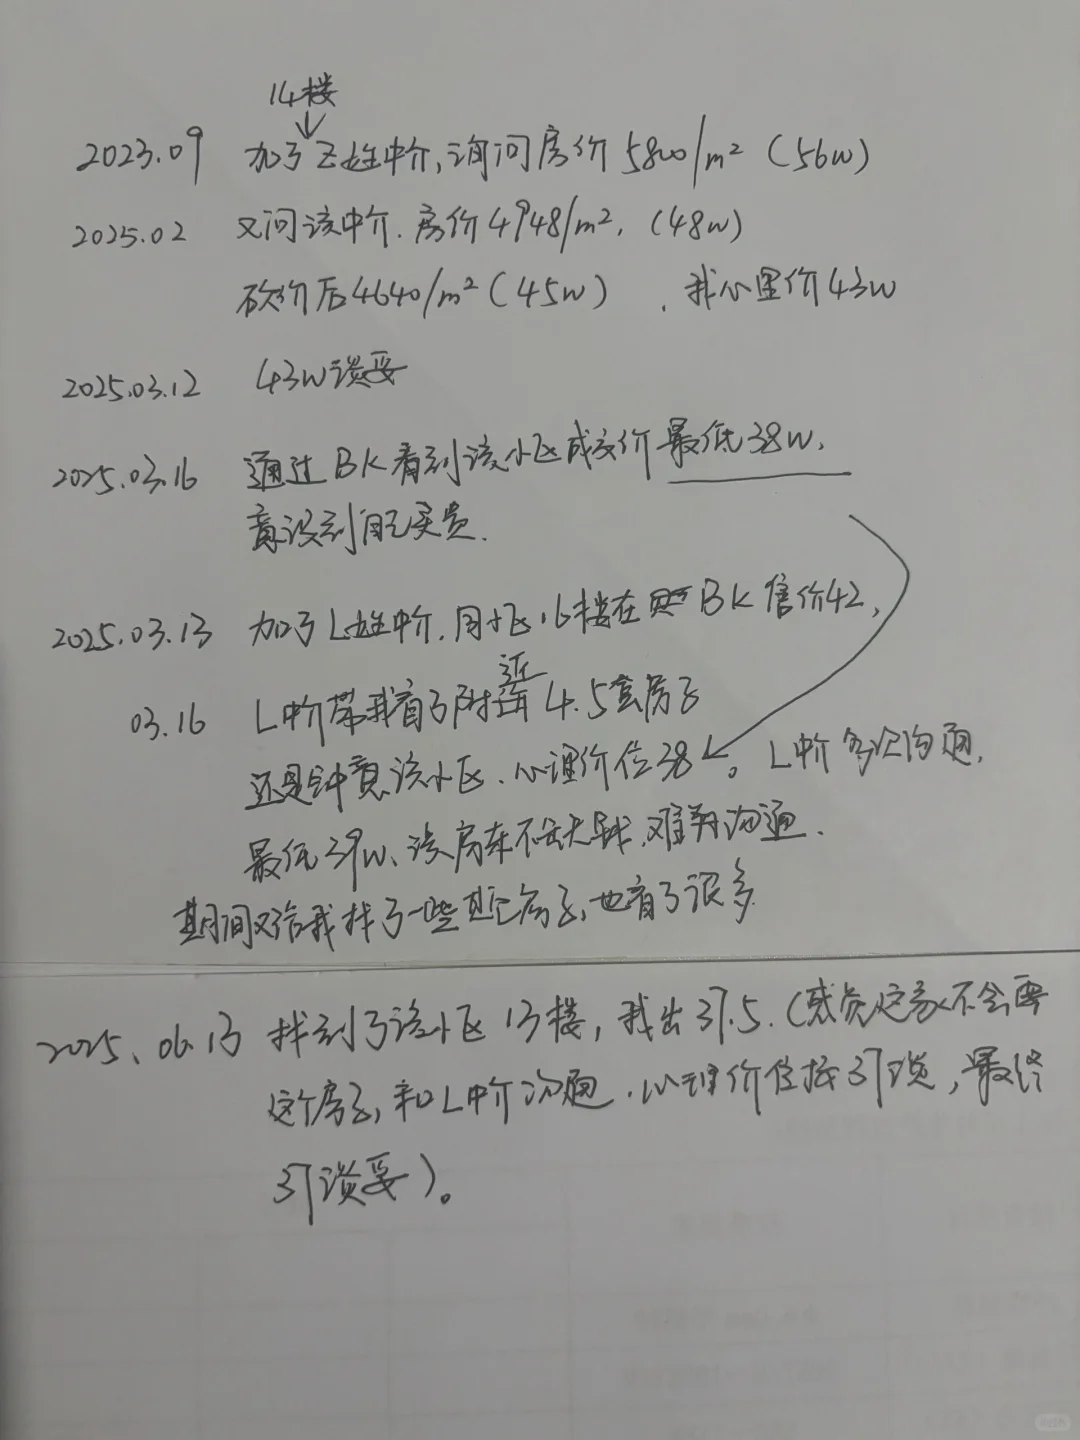 14楼
2023.09 加了Z姓中介,询问房价5800/m²(56w)
2025.02 又问该中介.房价4948/m²,(48w)
砍价后4640/m²(45w),我心里价43w
2025.03.12 43w谈妥
2025.03.16 通过BK看到该小区成交价最低38w,
意识到自己买贵.
2025.03.13 加了L姓中介.同小区16楼在BK售价42,
近
03.16 L中介带我看了附 4.5套房子
还是钟意该小区.心理价位38。L中介多次沟通,
最低39w、该房东不缺钱,难再沟通.
期间又给我找了一些其它房子,也看了很多
2025.06.13 找到了该小区13楼,我出37.5.(感觉这家不会要
这个房子,和L中介沟通.心理价位按37谈,最终
37谈妥)。